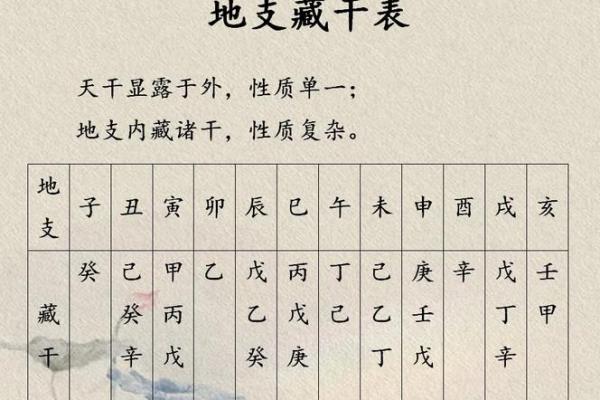 地支藏干表
天干显露于外，性质单一；
地支内藏诸干，性质复杂。
地支 子 丑 寅 卯 辰 巳 午 未 申 酉 戌 亥
藏干 癸 己癸辛 甲丙戊 乙 戊乙癸 丙戊庚 丁己 己乙丁 庚壬戊 辛 戊丁辛 壬甲